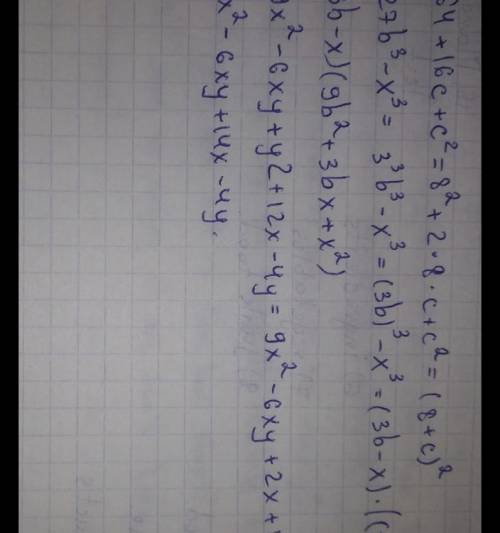 64 + 16c + c² = 8² + 2·8·c + c² = (8+c)²
27b³ - x³ = 3³b³ - x³ = (3b)³ - x³ = (3b-x)·((
3b-x)(9b² + 3bx + x²)
9x² - 6xy + y² + 12x - 4y = 9x² - 6xy + 2x +
x² - 6xy + 14x - 4y.